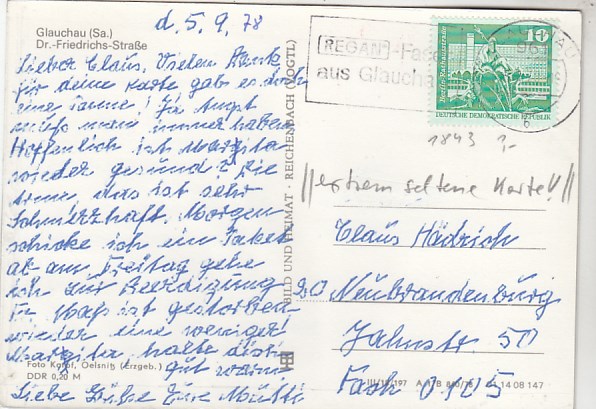 d. 5. 9. 78
Glauchau (Sa.)
Dr.-Friedrichs-Straße
Lieber Claus, Vielen Dank
für deine Karte gab es doch
eine
muß man immer haben
Hoffentlich ist Margita
wieder gesund? Die
Arme das ist sehr
schmerzhaft. Morgen
schicke ich ein Paket
ab am Freitag gehe
ich zur Beerdigung
ist gestorben
wieder eine weniger
Margita halte dich
gut warm
Liebe Grüße Eure Mutti
Foto Karpf, Oelsnitz (Erzgeb.)
DDR 0,20 M
BILD UND HEIMAT · REICHENBACH (VOGTL)
REGAN
aus Glauchau
961
10
Berlin-Rathausstraße
DEUTSCHE DEMOKRATISCHE REPUBLIK
1843 2,-
||extrem seltene Karte!||
Claus Hädrich
20 Neubrandenburg
Jahnstr. 5D
Fach 0125
01 14 08 147